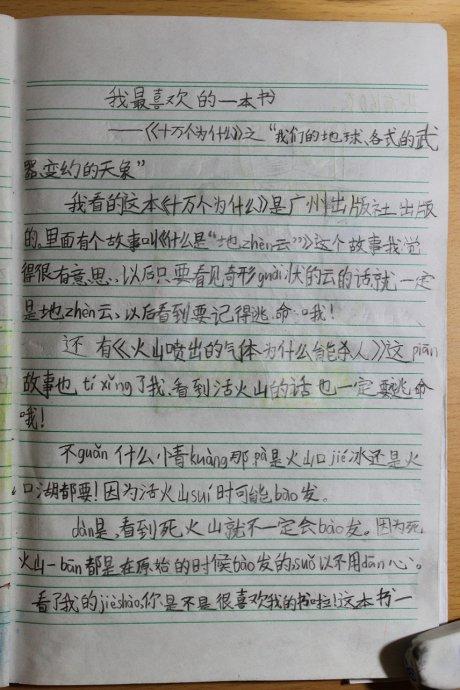 我最喜欢的一本书
——《十万个为什么》之“我们的地球、各式的武
器、变幻的天象”
我看的这本《十万个为什么》是广州出版社出版
的。里面有个故事叫《什么是“地zhèn云”》这个故事我觉
得很有意思,以后只要看见奇形guài状的云的话就一定
是地zhèn云、以后看到要记得逃命哦!
还有《火山喷出的气体为什么能杀人》这piān
故事也tí xǐng了我,看到活火山的话也一定要逃命
哦!
不guǎn什么情kuàng那pà是火山口jié冰还是火
口湖都要!因为活火山suí时可能bào发。
dàn是,看到死火山就不一定会bào发。因为死
火山一bān都是在原始的时候bào发的,suǒ以不用dān心。
看了我的jièshào,你是不是很喜欢我的书啦!这本书一